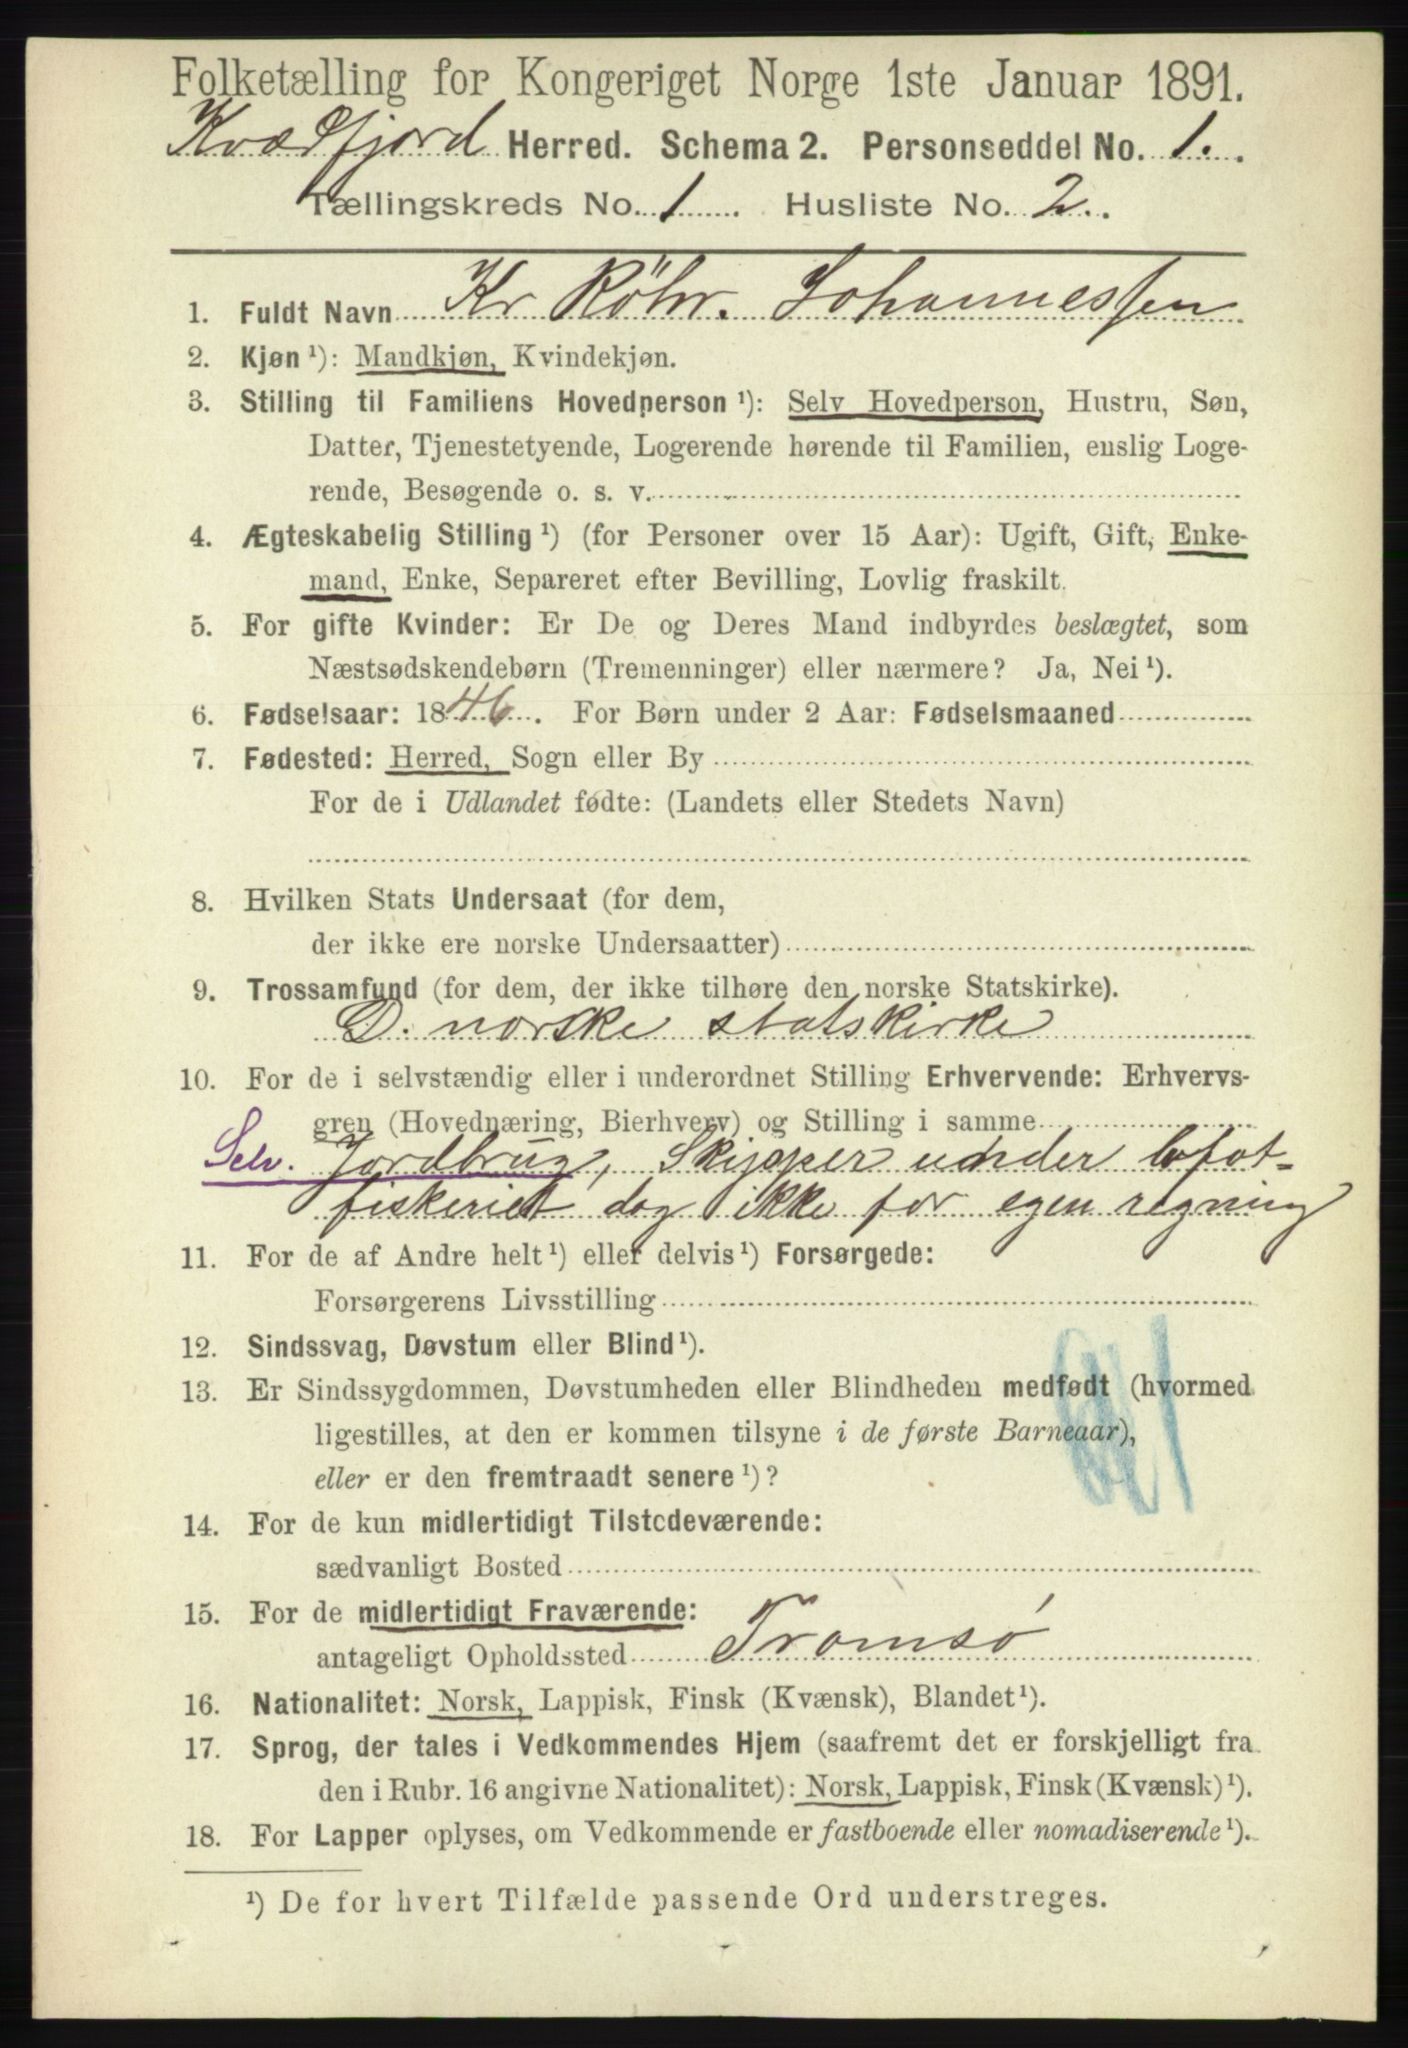 Folketælling for Kongeriget Norge 1ste Januar 1891.
Kvædfjord Herred. Schema 2. Personseddel No. 1.
Tællingskreds No. 1 Husliste No. 2.
1. Fuldt Navn Kr Röhr. Johannessen
2. Kjøn ¹): Mandkjøn, Kvindekjøn.
3. Stilling til Familiens Hovedperson ¹): Selv Hovedperson, Hustru, Søn,
Datter, Tjenestetyende, Logerende hørende til Familien, enslig Loge-
rende, Besøgende o. s. v.
4. Ægteskabelig Stilling ¹) (for Personer over 15 Aar): Ugift, Gift, Enke-
mand, Enke, Separeret efter Bevilling, Lovlig fraskilt.
5. For gifte Kvinder: Er De og Deres Mand indbyrdes beslægtet, som
Næstsødskendebørn (Tremenninger) eller nærmere? Ja, Nei ¹).
6. Fødselsaar: 1846. For Børn under 2 Aar: Fødselsmaaned
7. Fødested: Herred, Sogn eller By
For de i Udlandet fødte: (Landets eller Stedets Navn)
8. Hvilken Stats Undersaat (for dem,
der ikke ere norske Undersaatter)
9. Trossamfund (for dem, der ikke tilhøre den norske Statskirke).
D. norske statskirke
10. For de i selvstændig eller i underordnet Stilling Erhvervende: Erhvervs-
gren (Hovednæring, Bierhverv) og Stilling i samme
Selv. Jordbrug, Skipper under lofot-
fiskeriet dog ikke for egen regning
11. For de af Andre helt ¹) eller delvis ¹) Forsørgede:
Forsørgerens Livsstilling
12. Sindssvag, Døvstum eller Blind ¹).
13. Er Sindssygdommen, Døvstumheden eller Blindheden medfødt (hvormed
ligestilles, at den er kommen tilsyne i de første Barneaar),
eller er den fremtraadt senere ¹)?
14. For de kun midlertidigt Tilstedeværende:
sædvanligt Bosted
15. For de midlertidigt Fraværende:
antageligt Opholdssted Tromsø
16. Nationalitet: Norsk, Lappisk, Finsk (Kvænsk), Blandet ¹).
17. Sprog, der tales i Vedkommendes Hjem (saafremt det er forskjelligt fra
den i Rubr. 16 angivne Nationalitet): Norsk, Lappisk, Finsk (Kvænsk) ¹).
18. For Lapper oplyses, om Vedkommende er fastboende eller nomadiserende ¹).
¹) De for hvert Tilfælde passende Ord understreges.